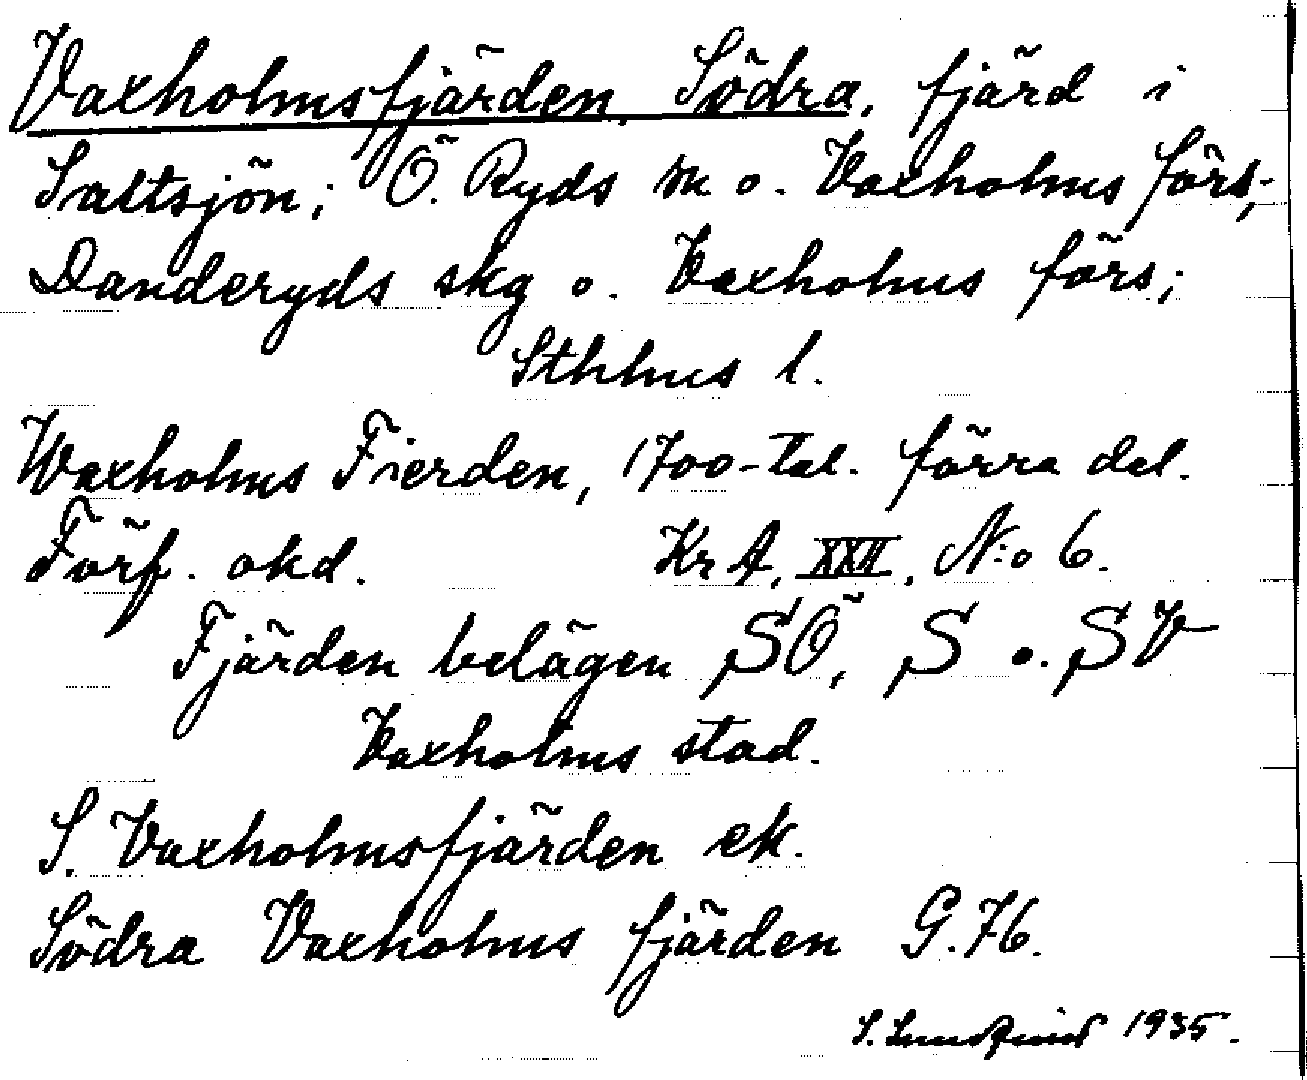 Vaxholmsfjärden, Södra, fjärd i
Saltsjön; Ö. Ryds sn o. Vaxholms förs;
Danderyds skg o. Vaxholms förs;
Sthlms l.
Waxholms Fierden, 1700-tal. förra del.
Förf. okd. Kr A, XXII, N:o 6.
Fjärden belägen SÖ, S o. SV
Vaxholms stad.
S. Vaxholmsfjärden ek.
Södra Vaxholms fjärden G.76.
S. Lundqvist 1935.